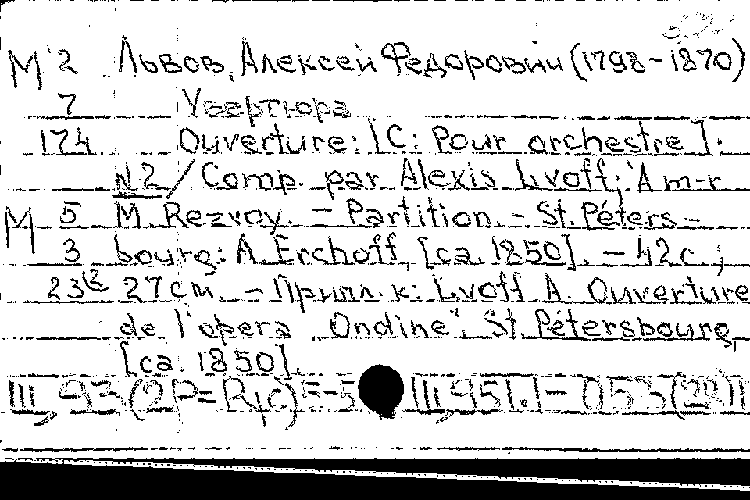 М 2 Львов, Алексей Федорович (1798-1870)
7 Увертюра
174 Ouverture: [C: Pour orchestre]:
N2 / Comp. par Alexis Lvoff; А m-r
М 5 M. Rezvoy. - Partition. - St. Péters-
3 bourg: A. Erchoff, [ca. 1850]. - 42 с.;
23 27 см. - Прилл. к: Lvoff A. Ouverture
de l'opera "Ondine". St. Pétersbourg,
[ca. 1850].